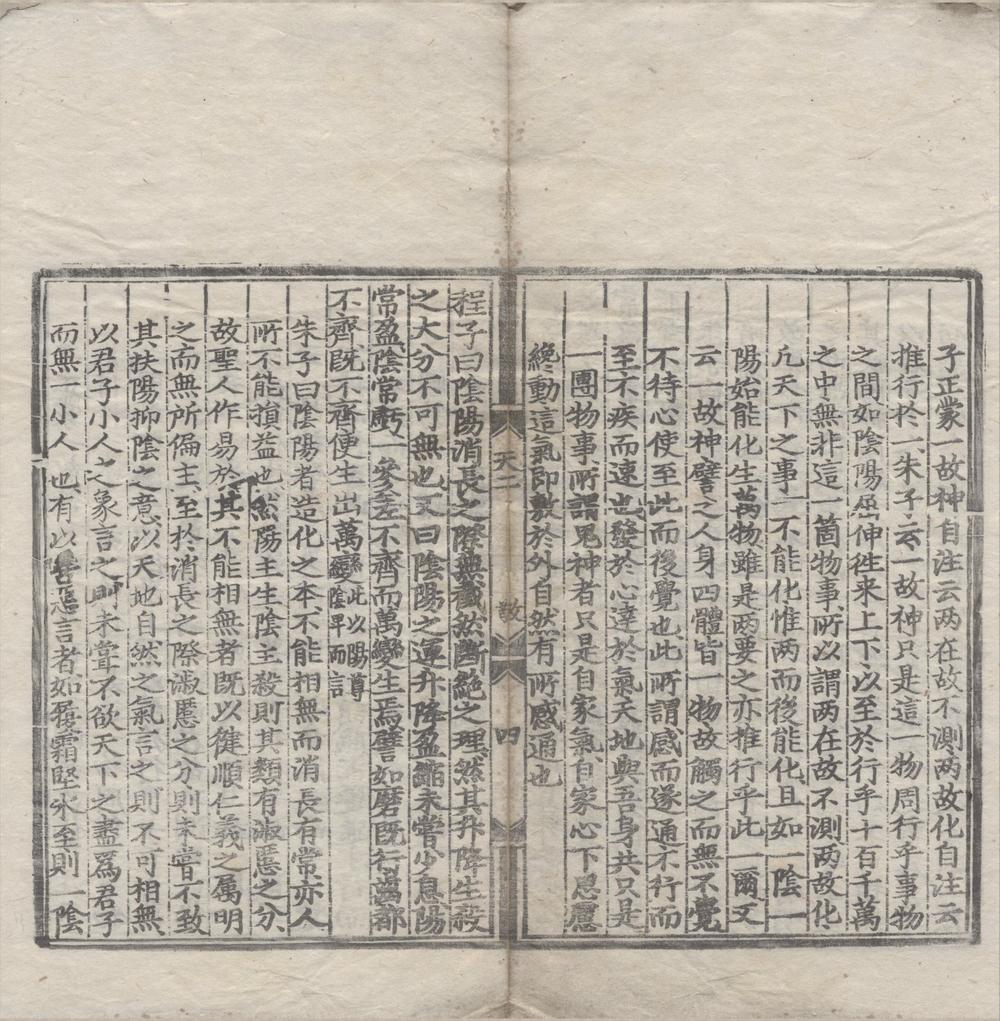 子正蒙一故神自注云两在故不測两故化自注云
推行於一朱子云一故神只是這一物周行乎事物
之間如陰陽屈伸徃来上下以至於行乎十百千萬
之中無非這一箇物事所以謂两在故不測两故化
凢天下之事一不能化惟两而後能化且如一陰一
陽始能化生萬物雖是两要之亦推行乎此一爾又
云一故神譬之人身四體皆一物故觸之而無不覺
不待心使至此而後覺也此所謂感而遂通不行而
至不疾而速也發於心達於氣天地與吾身共只是
一團物事所謂鬼神者只是自家氣自家心下思慮
纔動這氣即敷於外自然有所感通也
天二
四
程子曰陰陽消長之際無截然斷絶之理然其升降生殺
之大分不可無也又曰陰陽之運升降盈縮未嘗少息陽
常盈陰常虧一參差不齊而萬變生焉譬如磨既行齒都
不齊既不齊便生出萬變此以陽尊陰卑而言
朱子曰陰陽者造化之本不能相無而消長有常亦人
所不能損益也然陽主生陰主殺則其類有淑慝之分
故聖人作易於其不能相無者既以健順仁義之属明
之而無所偏主至於消長之際淑慝之分則未嘗不致
其扶陽抑陰之意以天地自然之氣言之則不可相無
以君子小人之象言之則未嘗不欲天下之盡爲君子
而無一小人也有以善惡言者如履霜堅氷至則一陰